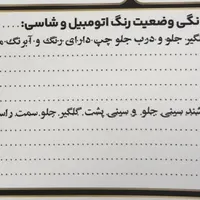 نگی وضعیت رنگ اتومبیل و شاسی:
گیر، جلو و درب جلو چپ دارای رنگ و آبرنگ م
شند سینی جلو و سینی پشت گلگیر جلو سمت راس